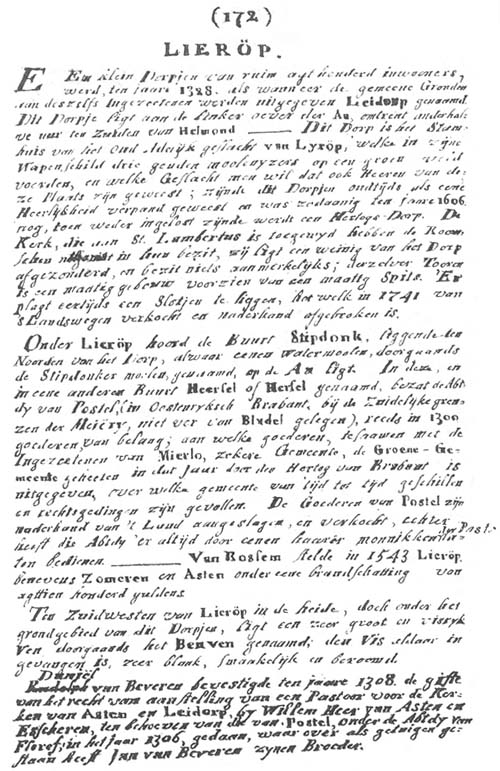 (172)
LIERÖP.
E Een klein Dorpjen van ruim agt honderd inwooners,
werd, ten jaare 1328. als wanneer de gemeene Gronden
aan deszelfs Ingezeetenen werden uitgegeven Leidorp genaamd.
Dit Dorpje ligt aan de linker oever der Aa, omtrent anderhalv
uur ten Zuiden van Helmond ——— Dit Dorp is het Stam-
huis van het Oud adelijk geslacht van Lyröp, welke in zijne
Wapenschild drie gouden moolenyzers op een groen veld
voerden, en welke Geslacht men wil dat ook Heeren van de-
ze Plaats zijn geweest; zijnde dit Dorpjen ondtijds als eene
Heerlykheid verpand geweest en was zodaanig ten jaare 1606.
nog, toen weder ingelost zijnde werdt een Hertogs-Dorp. De
Kerk, die aan St. Lambertus is toegewyd hebben de Room-
schen in hun bezit, zij ligt een weinig van het Dorp
afgezonderd, en bezit niets aanmerkelyks; derzelver Tooren
is een maatig gebouw voorzien van een maatig Spits. 'Er
plagt eertijds een Slotjen te liggen, het welk in 1741 van
's Landswegen verkocht en naderhand afgebroken is.
Onder Lieröp hoord de Buurt Stipdonk, liggende ten
Noorden van het Dorp, alwaar eenen watermoolen, doorgaands
de Stipdonker moolen, genaamd, op de Aa ligt. In deze, en
in eene anderen Buurt Heersel of Hersel genaamd, bezat de Abt-
dy van Postel, (in Oostenryksch Brabant, bij de Zuidelyke gren-
zen der Meiëry, niet ver van Bladel gelegen), reeds in 1300
goederen, van belang; aan welke goederen, tesaamen met de
Ingezetenen van Mierlo, zekere Gemeente, de Groene-Ge-
meente geheeten in dat jaar door den Hertog van Brabant is
uitgegeven, over welke gemeente van tijd tot tijd geschillen
en rechtsgedingen zijn gevallen. De Goederen van Postel zijn
naderhand van 't Land aangeslagen, en verkocht, echter
heeft die Abtdy 'er altijd door eenen haarer monnikken laa-
ten bedienen. ——— Van Rossem stelde in 1543 Lieröp,
benevens Zomeren en Asten onder eene brandschatting van
agttien honderd guldens.
Ten Zuidwesten van Lieröp in de heide, doch onder het
grondgebied van dit Dorpjen, ligt een zeer groot en visryk
Ven doorgaands het Beuven genaamd; den Vis aldaar in
gevangen is, zeer blank, smaakelijk en beroemd.
Daniel
Rudolph van Beveren bevestigde ten jaare 1308. de gifte
van het recht van aanstelling van een Pastoor voor de Ker-
ken van Asten en Leidorp, by Willem Heer van Asten en
Esscheren, ten behoeven van de van Postel, onder de Abtdy van
Floref, in het jaar 1306, gedaan, waar over als getuigen ge-
staan heeft Jan van Beveren zynen Broeder.